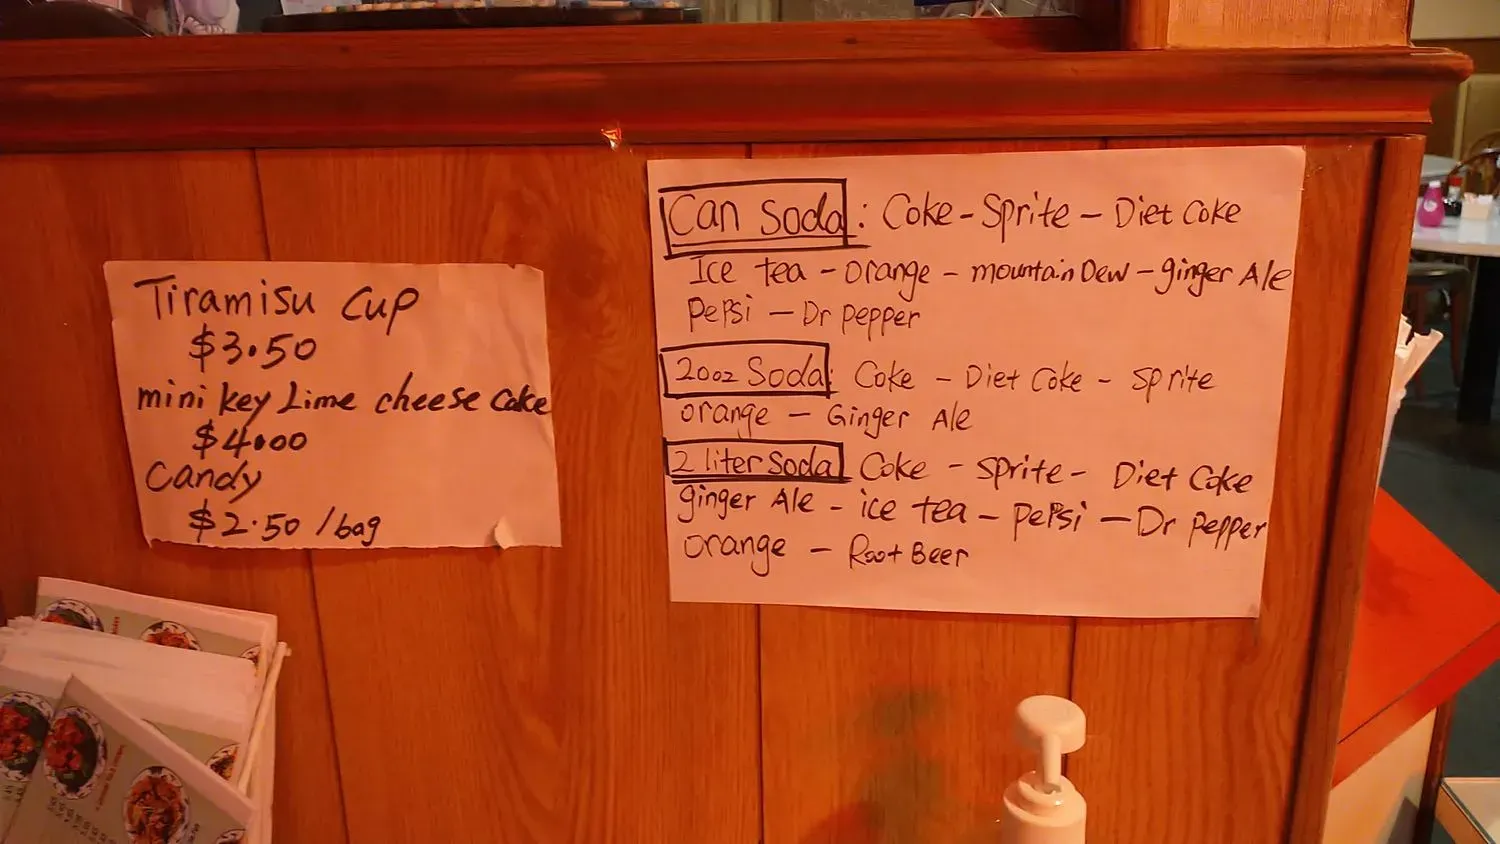 Tiramisu Cup
$3.50
mini key Lime cheese cake
$4.00
Candy
$2.50 /bag
Can Soda: Coke - Sprite - Diet Coke
Ice tea - orange - mountain Dew - ginger Ale
Pepsi - Dr pepper
20oz Soda: Coke - Diet Coke - Sprite
orange - Ginger Ale
2 liter Soda Coke - Sprite - Diet Coke
ginger Ale - ice tea - Pepsi - Dr pepper
orange - Root Beer